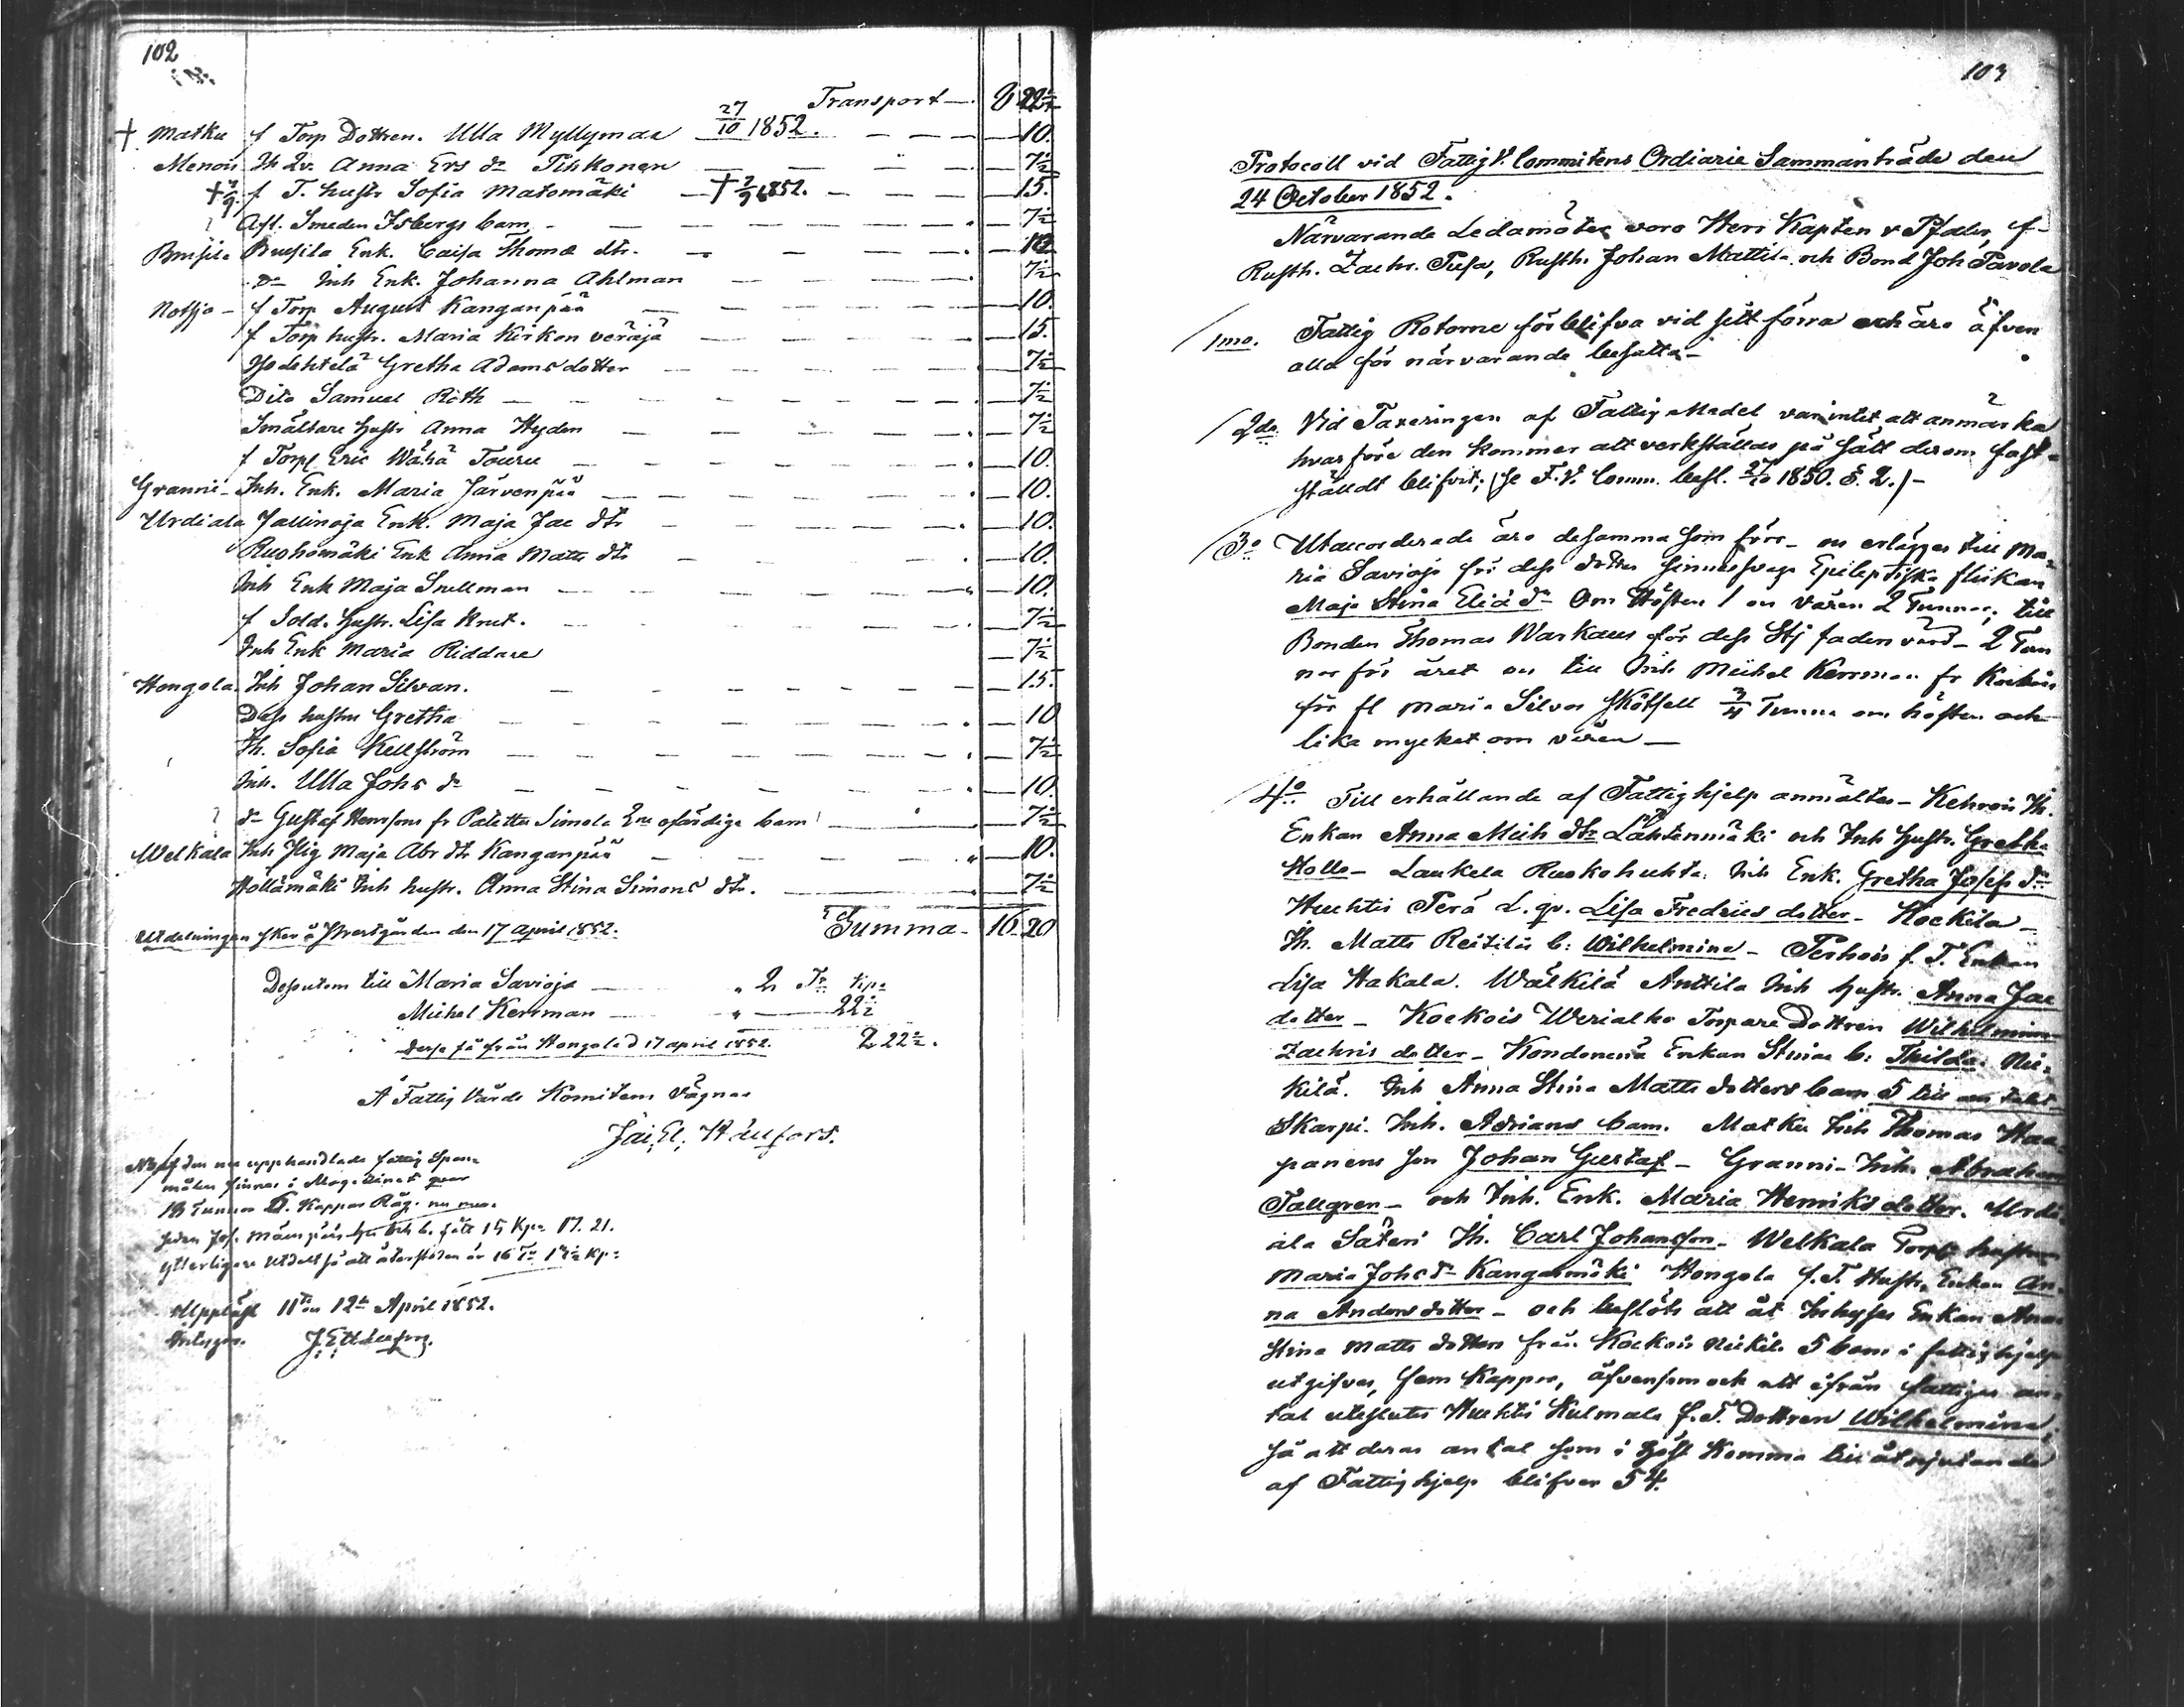 102
Transport — 8 22½
† Matku f Torp Dottren. Ulla Myllymaa 27/10 1852. — 10.
Menois Th Qv. Anna Ers dr Tihkonen — 7½
† 2/9. f T. hustr Sofia Matomäki † 2/9 1852. — 15.
Afl. Smeden Isbergs barn — 7½
Bursila Bursila Enk. Caisa Thomæ dtr. — 10
dr Inh Enk. Johanna Ahlman — 7½
Notsjo f Torp August Kanganpää — 10.
f Torp hustr. Maria Kirkon veräjä — 15.
Gretha Adams dotter — 7½
Dito Samuel Röth — 7½
Smältare hustr Anna Hyden — 7½
f Torp Eric Wähä Touru — 10.
Granni Inh. Enk. Maria Järvenpää — 10.
Urdiala Jallinoja Enk. Maja Jac dtr — 10.
Ruohomäki Enk Anna Matts dtr — 10.
Inh Enk Maja Snellman — 10.
f Sold. hustr. Lisa Knut. — 7½
Inh Enk Maria Riddare — 7½
Hongola Inh Johan Silvan. — 15.
Dess hustru Gretha — 10
Th. Sofia Kellström — 7½
Inh. Ulla Johs dr — 10.
dr Gustaf Hemsons fr Simola ofärdiga barn — 7½
Welkala Inh Pig Maja Abr dtr Kanganpää — 10.
Hollämäki Inh hustr. Anna Stina Simons dtr. — 7½
Summa — 16 20
Utdelningen sker å den 17 April 1852.
Dessutom till Maria Savioja — " 2 Tr kpr
Michel Kerrman — " — 22½
dessa få från Hongola d 17 April 1852. 2 22½.
Å Fattig Vårds Komitens Vägnar
J. E. Hällfors.
Af den nu upphandlade fattig Span-
målen finnes i Magasinet qvar
18 Tunnor Kappor Råg.
15 Kpr 17. 21.
ytterligare utdelt så att återstoden är 16 Tr 19½ Kpr
Uppläst 11te on 12te April 1852.
Intygar. J. E. Hällfors.
103
Protocoll vid Fattig V. Commitens Ordiarie Sammanträde den
24 October 1852.
Närvarande Ledamöter voro Herr Kapten v Pfaler, f-
Rusth. Zachr. Pusa, Rusth. Johan Mattila och Bond Joh Pavola
1mo. Fattig Rotorne förblifva vid sitt förra och äro äfven
alla för närvarande besatta —
2do. Vid Taxeringen af Fattig Medel var intet att anmärka
hvarföre den kommer att verkställas på sätt derom fast-
ställdt blifvit; (se F.V. Comm. besl. 27/10 1850. §. 2.) —
3o Utaccorderade äro desamma som förr — on erlägges till Ma-
ria Savioja för dess dotter sinnessvaga Epileptiska flickan
Maja Stina Eliæ dr Om Hösten 1 on våren 2 Tunnor; till
Bonden Thomas Warkaus för dess Stjffaders vård — 2 Tun
nor för året on till Inh Michel Kerrman fr Kockois
för fl Maria Silvas Skötsell 3/4 Tunna om hösten och
lika mycket om våren —
4o Till erhållande af Fattighjelp anmältes — Kehrois Th.
Enkan Anna Mich dtr Lähtenmäki och Inh hustr. Gretha
Hollo — Laukela Ruokohuhta Inh Enk. Gretha Josefs dr
Huhtis Perä L. qv. Lisa Fredrics dotter — Kockila
Th. Matts Reitilis b: Wilhelmina — Perhois f. T. Enkan
Lisa Hakala. Wälkilä Anttila Inh hustr. Anna Jac
dotter — Kockois Werialho Torpare Dottren Wilhelmina
Zachris dotter — Enkan Stina b: Thilda. Nii-
kilä. Inh Anna Stina Matts dotters barn 5 till
Skarpi. Inh. Adrians barn. Matku Inh Thomas Haa-
panens son Johan Gustaf — Granni Inh. Abraham
Tallgren — och Inh. Enk. Maria Henriks dotter. Urdi-
ala Säteri Th. Carl Johansson — Welkala Torp hustrun
Maria Johs dr Kangasmäki Hongola f. T. Hustr. Enkan An-
na Anders dotter — och beslöts att åt Inhyses Enkan Anna
Stina Matts dotters från Kockois Niikilä 5 barn i fattighjelp
utgifves, fem Kappor, äfvensom och att ifrån fattiges an-
tal uteslutes Huhtis Kulmala f. T. Dottren Wilhelmina,
så att deras antal som i höst komma till åtnjutande
af Fattighjelp blifver 54.